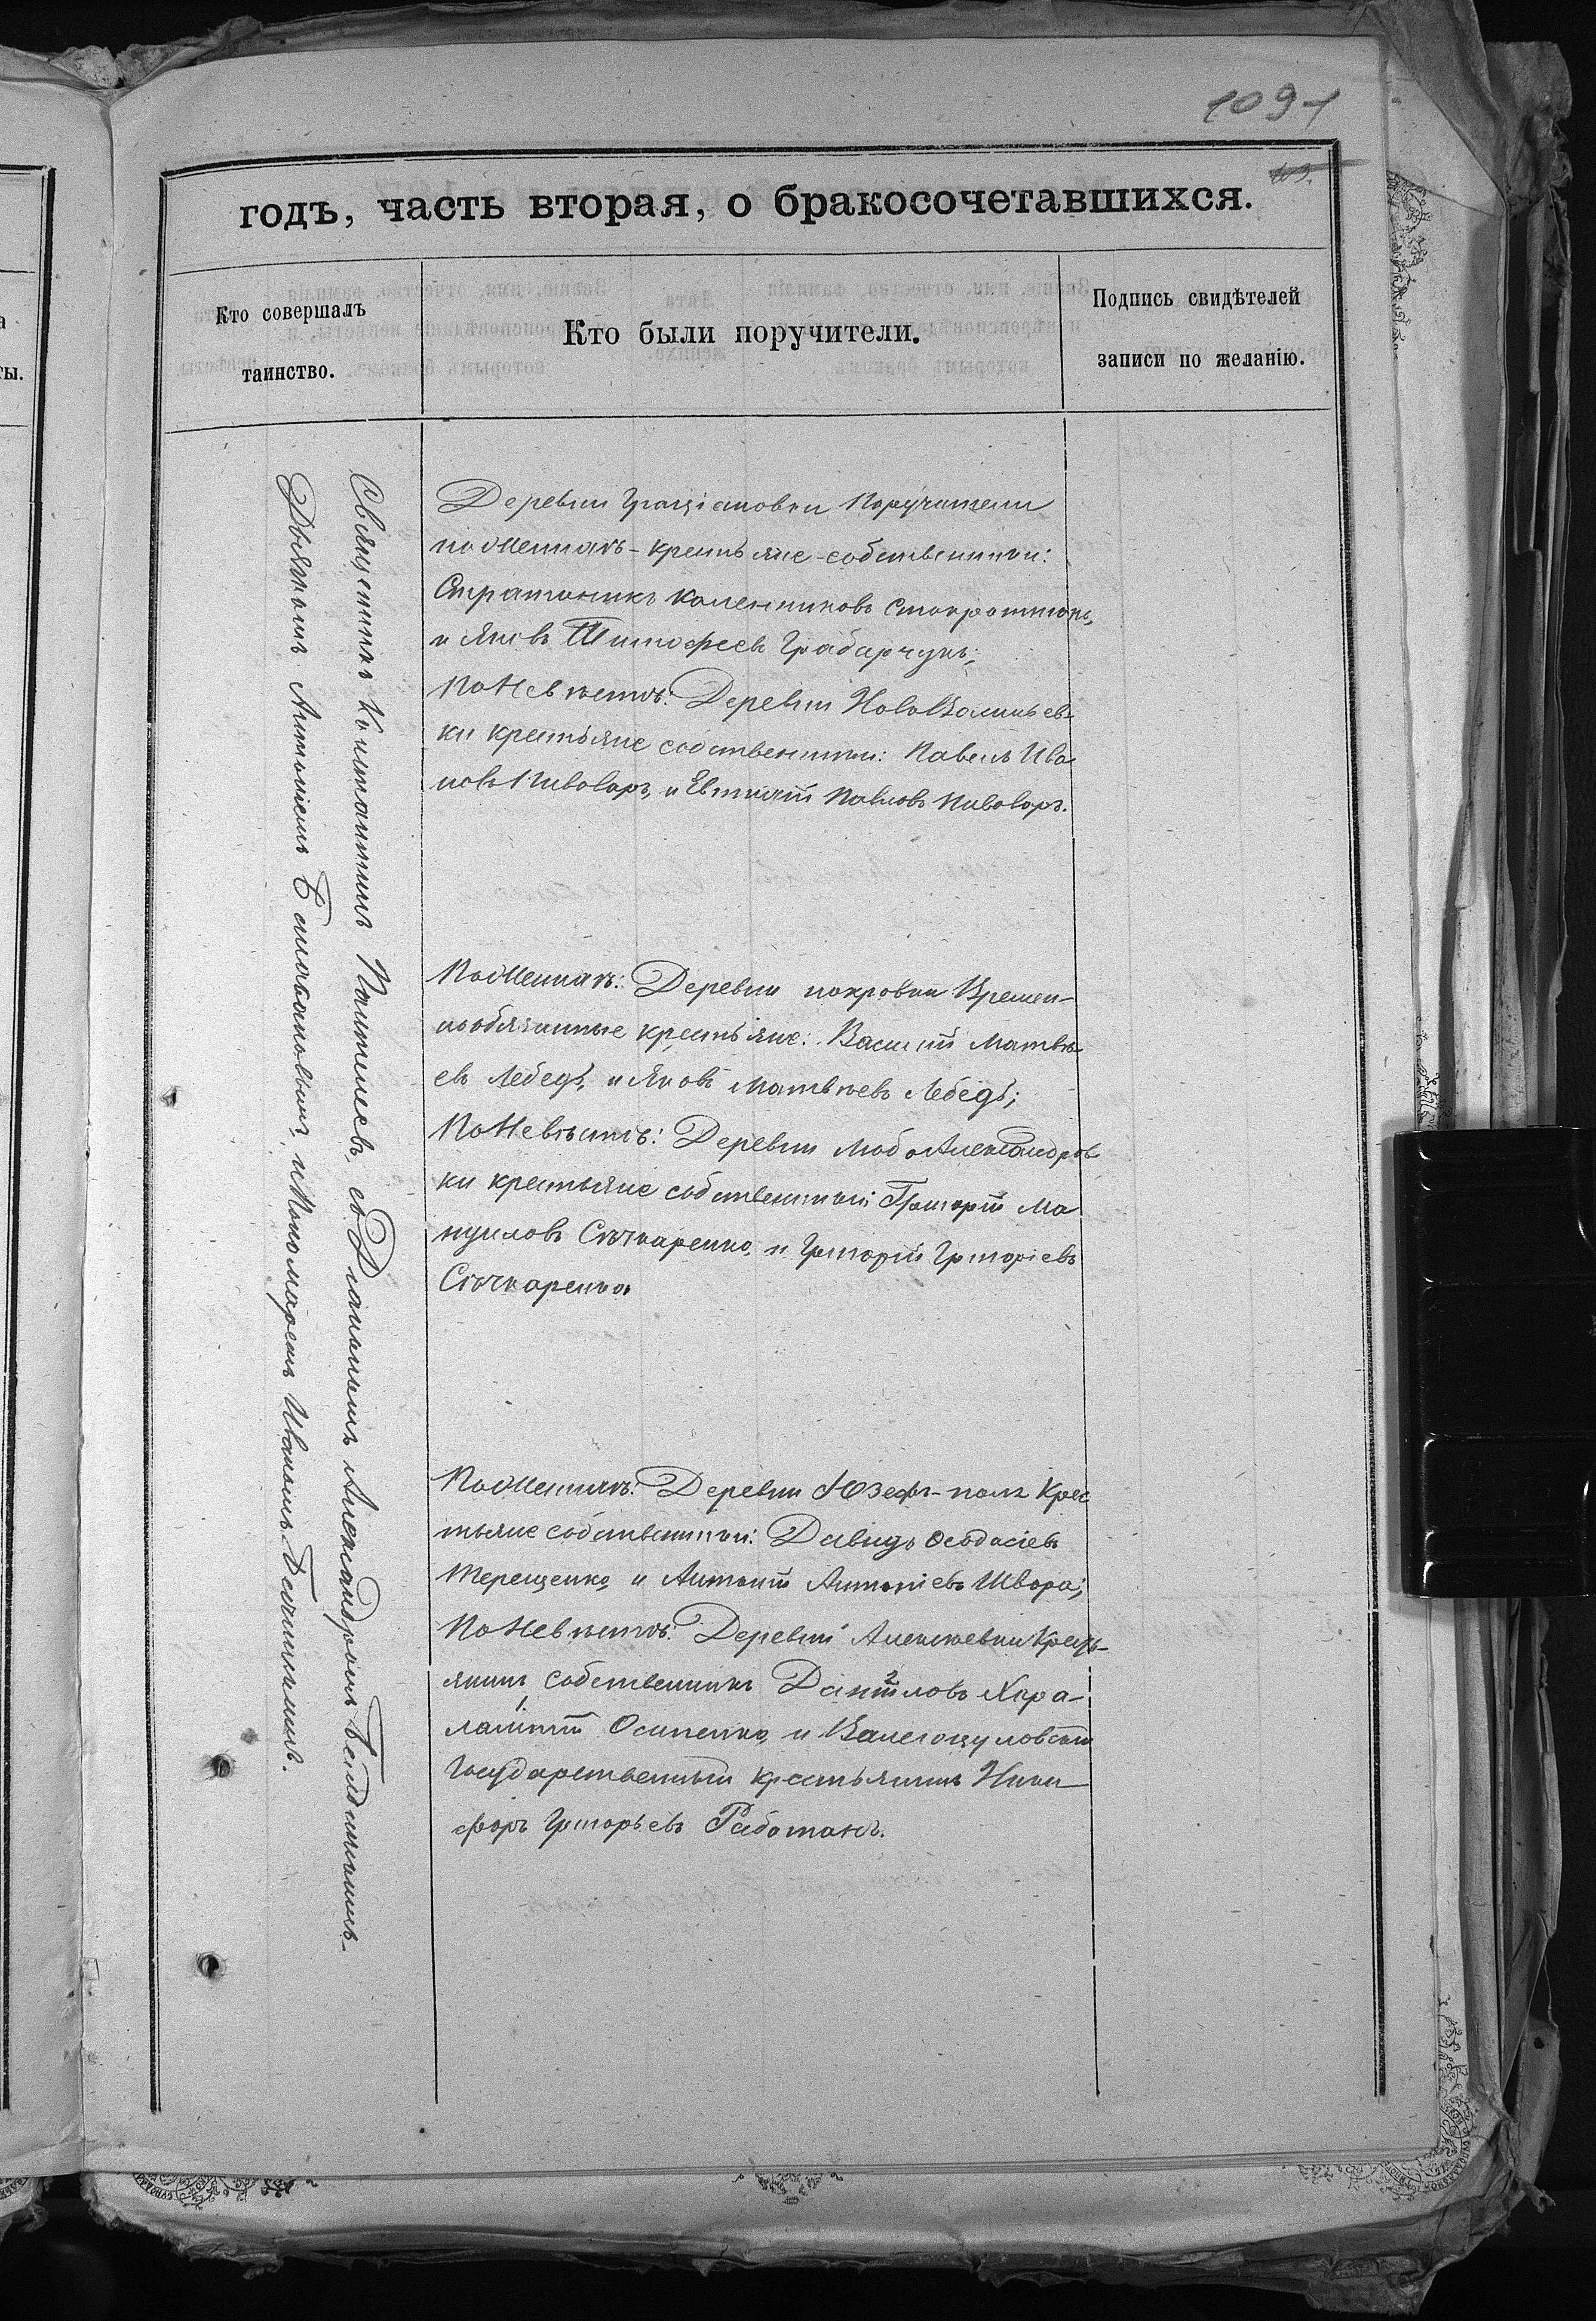 1091
103.
годъ, часть вторая, о бракосочетавшихся.
Кто совершалъ
таинство.
Кто были поручители.
Подпись свидѣтелей
записи по желанію.
Священникъ Пантелеев, съ Диакономъ Александромъ
Дьячкомъ Антоніемъ и Пономаремъ Иваномъ
Деревни Граціановки Поручители
по Женихѣ - крестьяне-собственники:
Стратоникъ Каленниковъ
и Яковъ Тимофеевъ Грабарчукъ;
По Невѣстѣ: Деревни НовоВолиньев-
ки крестьяне собственники: Павелъ Ива
новъ Пивоваръ, и Евтихій Павловъ Пивоваръ.
По Женихѣ: Деревни покровки Времен-
нообязанные крестьяне: Василій Матвѣ
евъ Лебедь, и Яковъ Матвѣевъ Лебедь;
По Невѣстѣ: Деревни Любоалександров
ки крестьяне собственники Григорій Ма
нуиловъ Сѣчкаренко, и Григорій Григоріевъ
Сѣчкаренко.
По Женихѣ: Деревни Юзефъ-поля Крес
тьяне собственники: Давидъ Феодосіевъ
Терещенко, и Антоній Антоніевъ Швора;
По Невѣстѣ: Деревни Алексѣевки Кресть-
янинъ собственникъ Даніиловъ Хара-
лампій Осипенко, и Валегоцуловскій
Государственный крестьянинъ Ники
форъ Григорьевъ Работакъ.